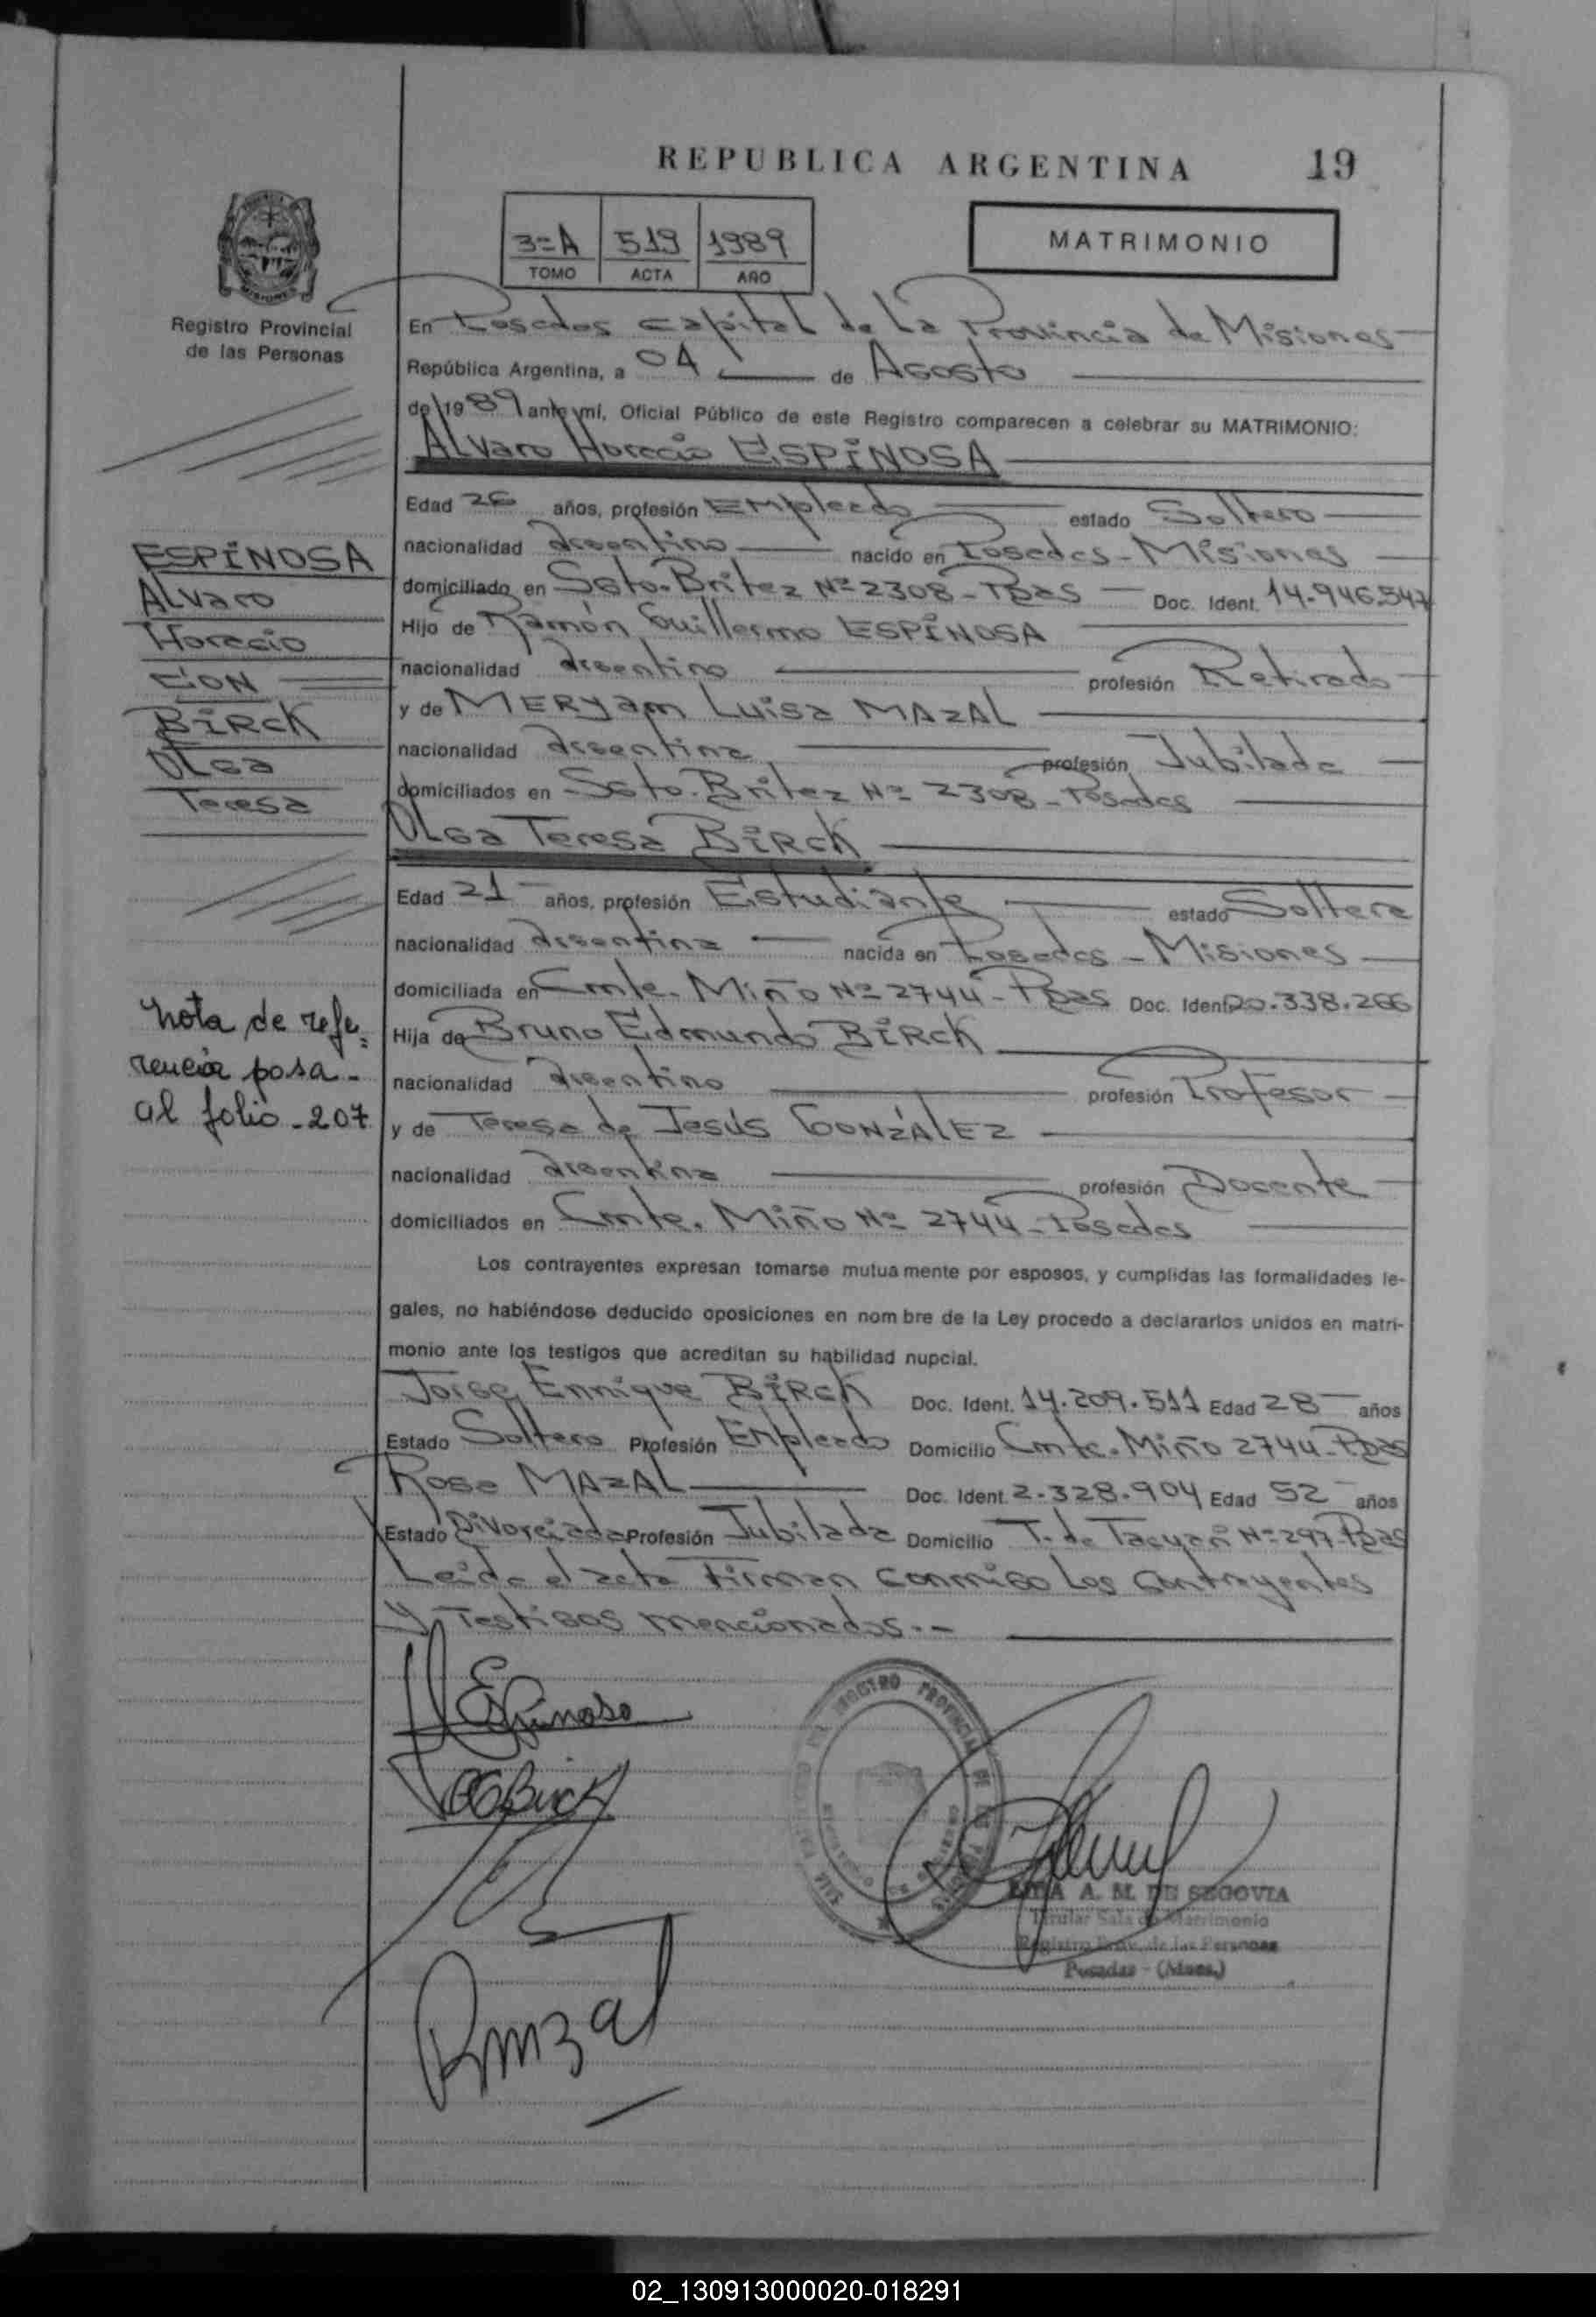 REPUBLICA ARGENTINA 19
3=A 519 1989
TOMO ACTA AÑO
MATRIMONIO
MISIONES
Registro Provincial
de las Personas
En Posadas capital de La Provincia de Misiones
República Argentina, a 04 de Agosto
de 1989 ante mí, Oficial Público de este Registro comparecen a celebrar su MATRIMONIO:
Alvaro Horacio ESPINOSA
Edad 26 años, profesión Empleado estado Soltero
nacionalidad argentino nacido en Posadas - Misiones
domiciliado en Sgto. Britez Nº 2308 - Pdas Doc. Ident. 14.946.547
Hijo de Ramón Guillermo ESPINOSA
nacionalidad argentino profesión Retirado
y de MERYam Luisa MAZAL
nacionalidad argentina profesión Jubilada
domiciliados en Sgto. Britez Nº 2308 - Posadas
Olga Teresa BIRCK
Edad 21 años, profesión Estudiante estado Soltera
nacionalidad argentina nacida en Posadas - Misiones
domiciliada en Cmte. Miño Nº 2744 - Pdas Doc. Ident. 20.338.266
Hija de Bruno Edmundo BIRCK
nacionalidad argentino profesión Profesor
y de Teresa de Jesús GONZALEZ
nacionalidad argentina profesión Docente
domiciliados en Cmte. Miño Nº 2744 - Posadas
Los contrayentes expresan tomarse mutuamente por esposos, y cumplidas las formalidades le-
gales, no habiéndose deducido oposiciones en nombre de la Ley procedo a declararlos unidos en matri-
monio ante los testigos que acreditan su habilidad nupcial.
Jorge Enrique BIRCK Doc. Ident. 14.209.511 Edad 28 años
Estado Soltero Profesión Empleado Domicilio Cmte. Miño 2744 - Pdas
Rosa MAZAL Doc. Ident. 2.328.904 Edad 52 años
Estado Divorciada Profesión Jubilada Domicilio T. de Tacuari Nº 297 - Pdas
Leida el acta Firman conmigo Los Contrayentes
y Testigos mencionados.-
ESPINOSA
Alvaro
Horacio
CON
BIRCK
Olga
Teresa
Nota de refe=
rencia pasa -
al folio - 207
Espinosa
OTBirck
Rmzal
REGISTRO PROVINCIAL DE LAS PERSONAS
A. M. DE SEGOVIA
Titular Sala de Matrimonio
Registro Prov. de las Personas
Posadas - (Mnes.)
02_130913000020-018291